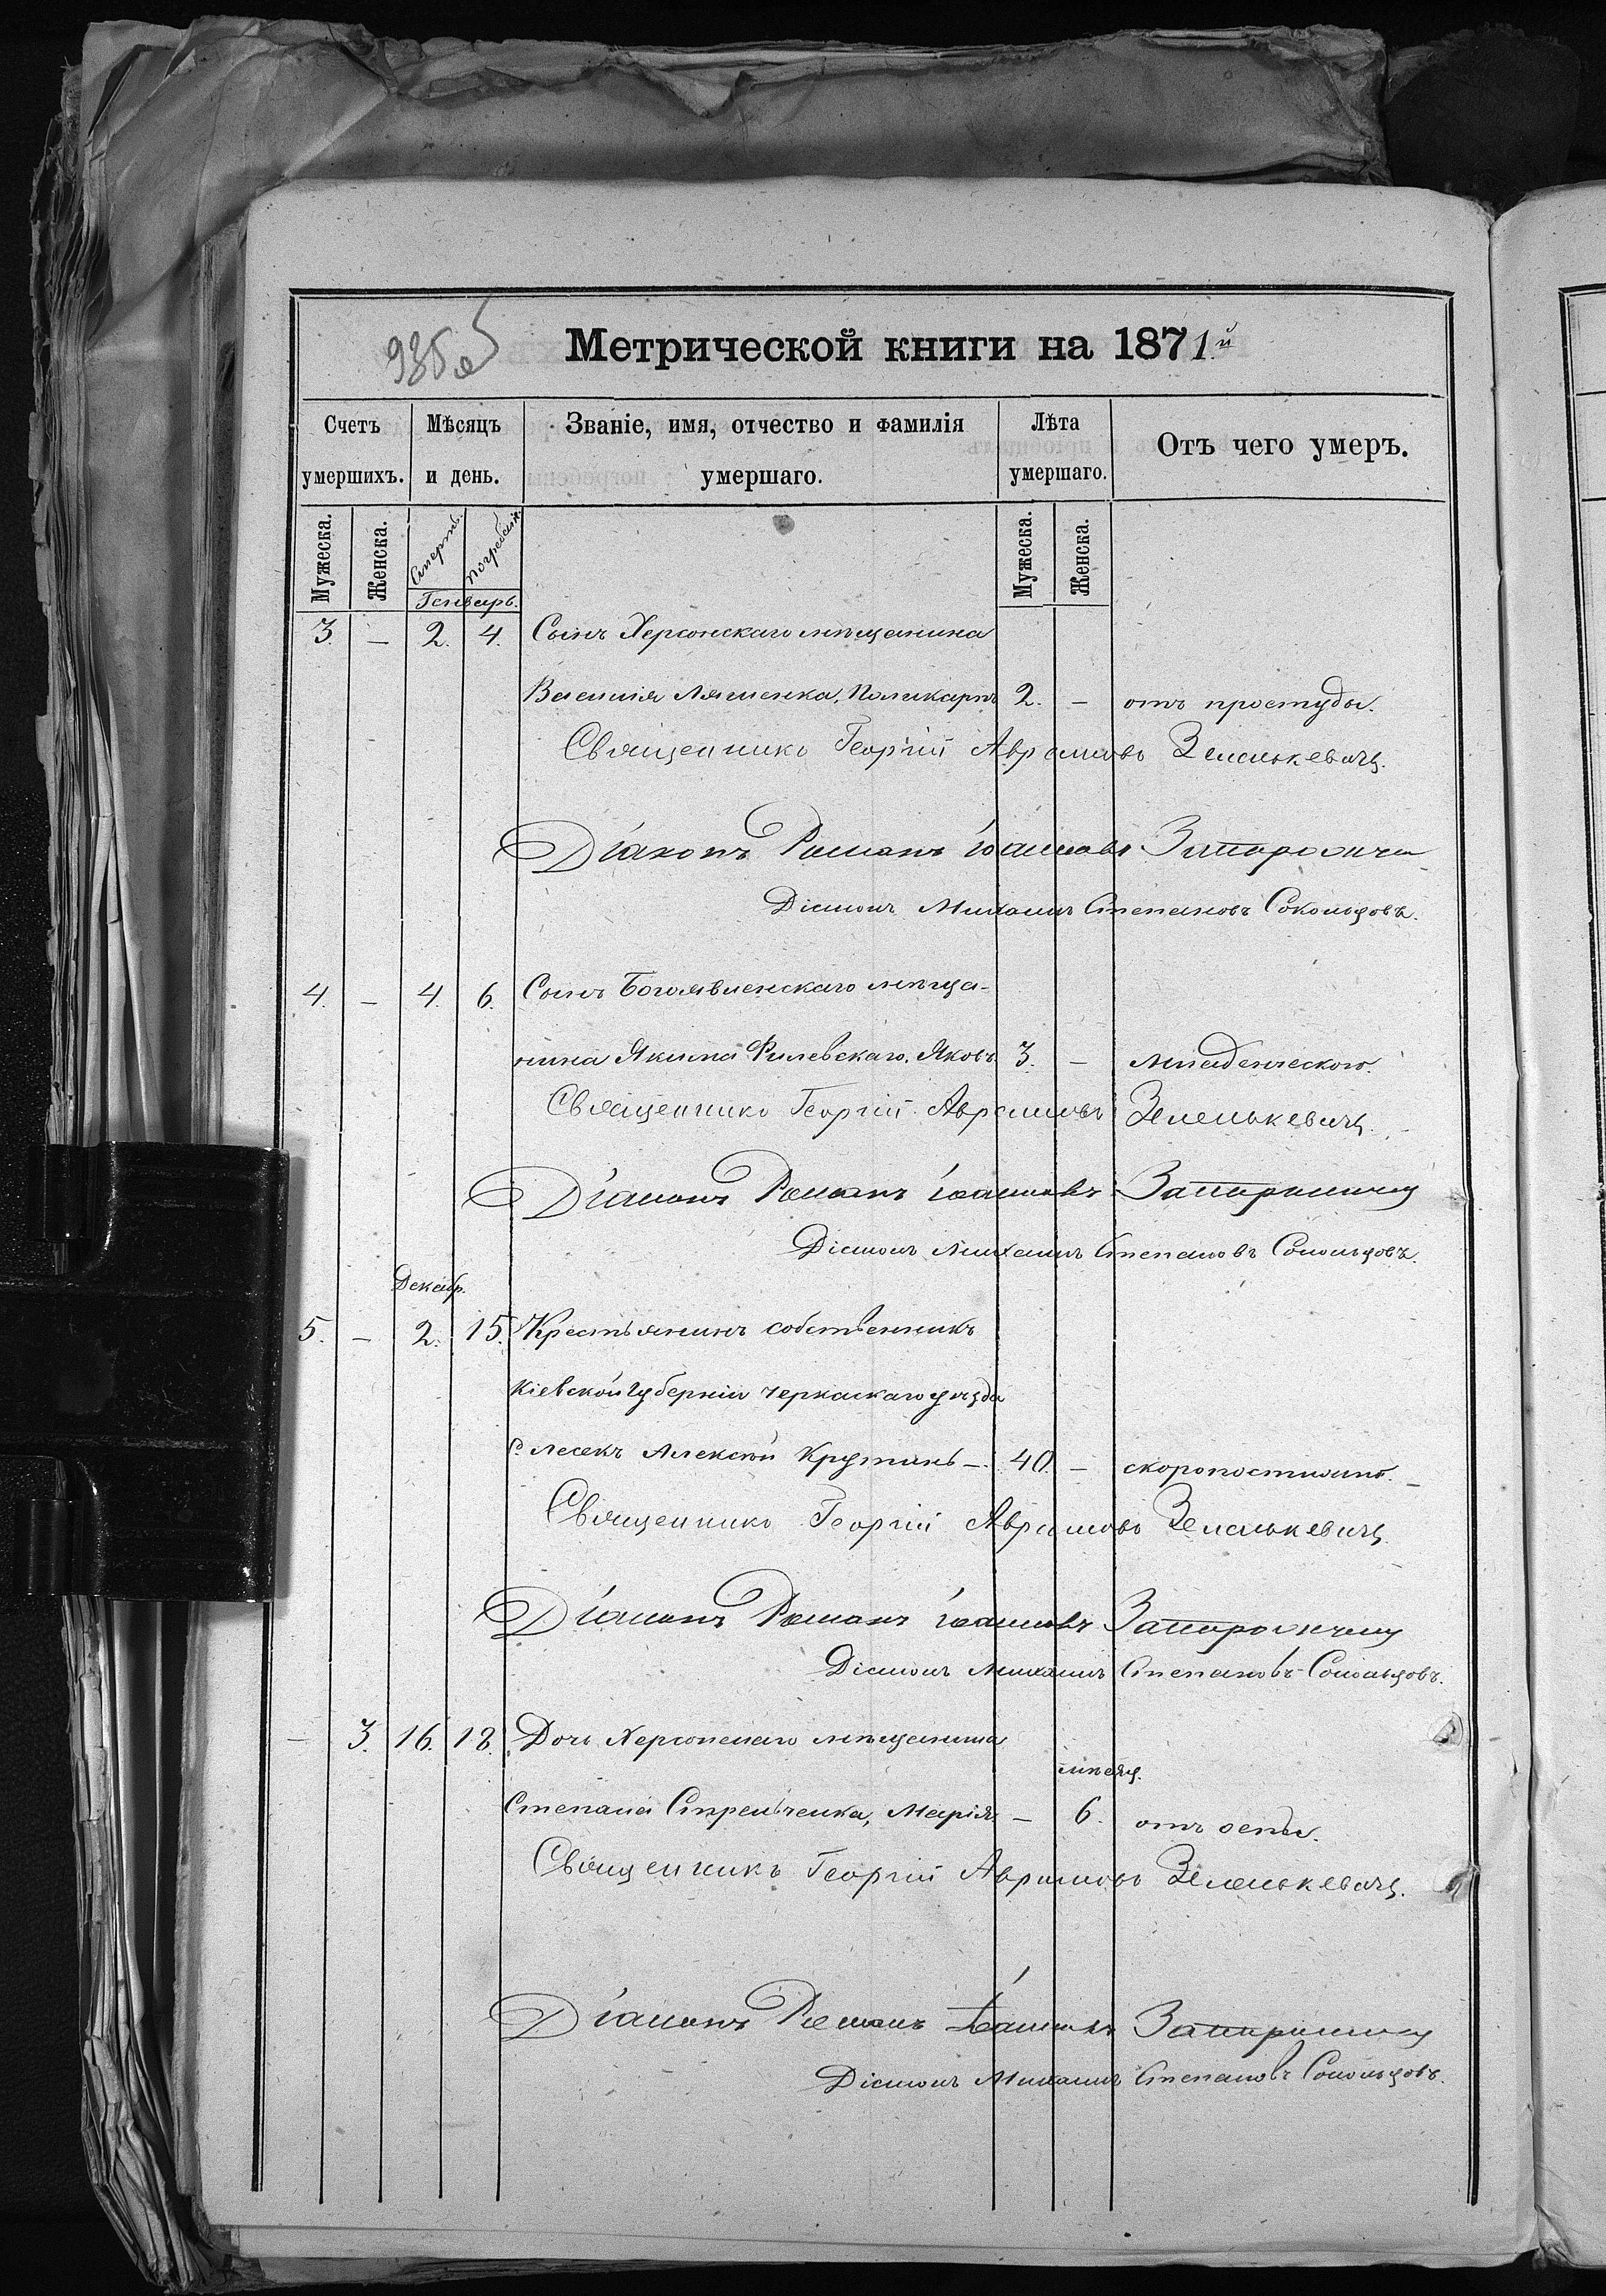 935об
Метрической книги на 1871й
Счетъ умершихъ. Мѣсяцъ и день. Званіе, имя, отчество и фамилія умершаго. Лѣта умершаго. Отъ чего умеръ.
Мужеска. Женска. Смерть. погребенія. Мужеска. Женска.
Генварь.
3. — 2. 4. Сынъ Херсонскаго мѣщанина
Василія Ляшенка, Поликарпъ 2. — отъ простуды.
Священникъ Георгій Аврамовъ Зеленькевичъ.
Діаконъ Романъ Іоанновъ
Діаконъ Михаилъ Степановъ Сокольцовъ.
4. — 4. 6. Сынъ Богоявленскаго мѣща-
нина Якима Филевскаго, Яковъ 3. — младенческаго.
Священникъ Георгій Аврамовъ Зеленькевичъ.
Діаконъ Романъ Іоанновъ
Діаконъ Михаилъ Степановъ Сокольцовъ.
Декабр.
5. — 2. 15. Крестьянинъ собственникъ
Кіевской губерніи черкаскаго уѣзда
с. лесекъ Алексѣй Крутань — 40. — скоропостижно. —
Священникъ Георгій Аврамовъ Зеленькевичъ.
Діаконъ Романъ Іоанновъ
Діаконъ Михаилъ Степановъ Сокольцовъ.
— 3. 16. 18. Дочь Херсонскаго мѣщанина
мѣсяц.
Степана Стрельченка, Марія — 6. отъ оспы.
Священникъ Георгій Аврамовъ Зеленькевичъ.
Діаконъ Романъ Іоанновъ
Діаконъ Михаилъ Степановъ Сокольцовъ.